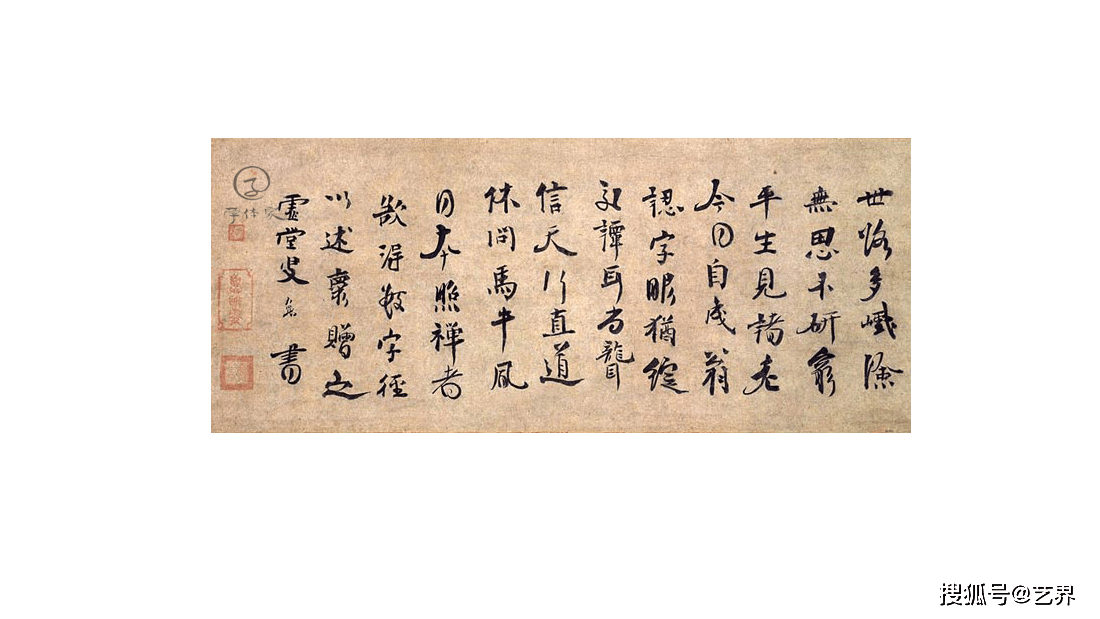 世路多巇險
無思不研窮
平生見諸老
今日自成翁
認字眼猶綻
交譚耳尚聾
信天行直道
休問馬牛風
日本照禪者
欲得數字徑
以述懷贈之
虛堂叟 書
字体家
搜狐号@艺界